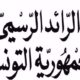 الرّائد الرّسمي
مهورية التونس